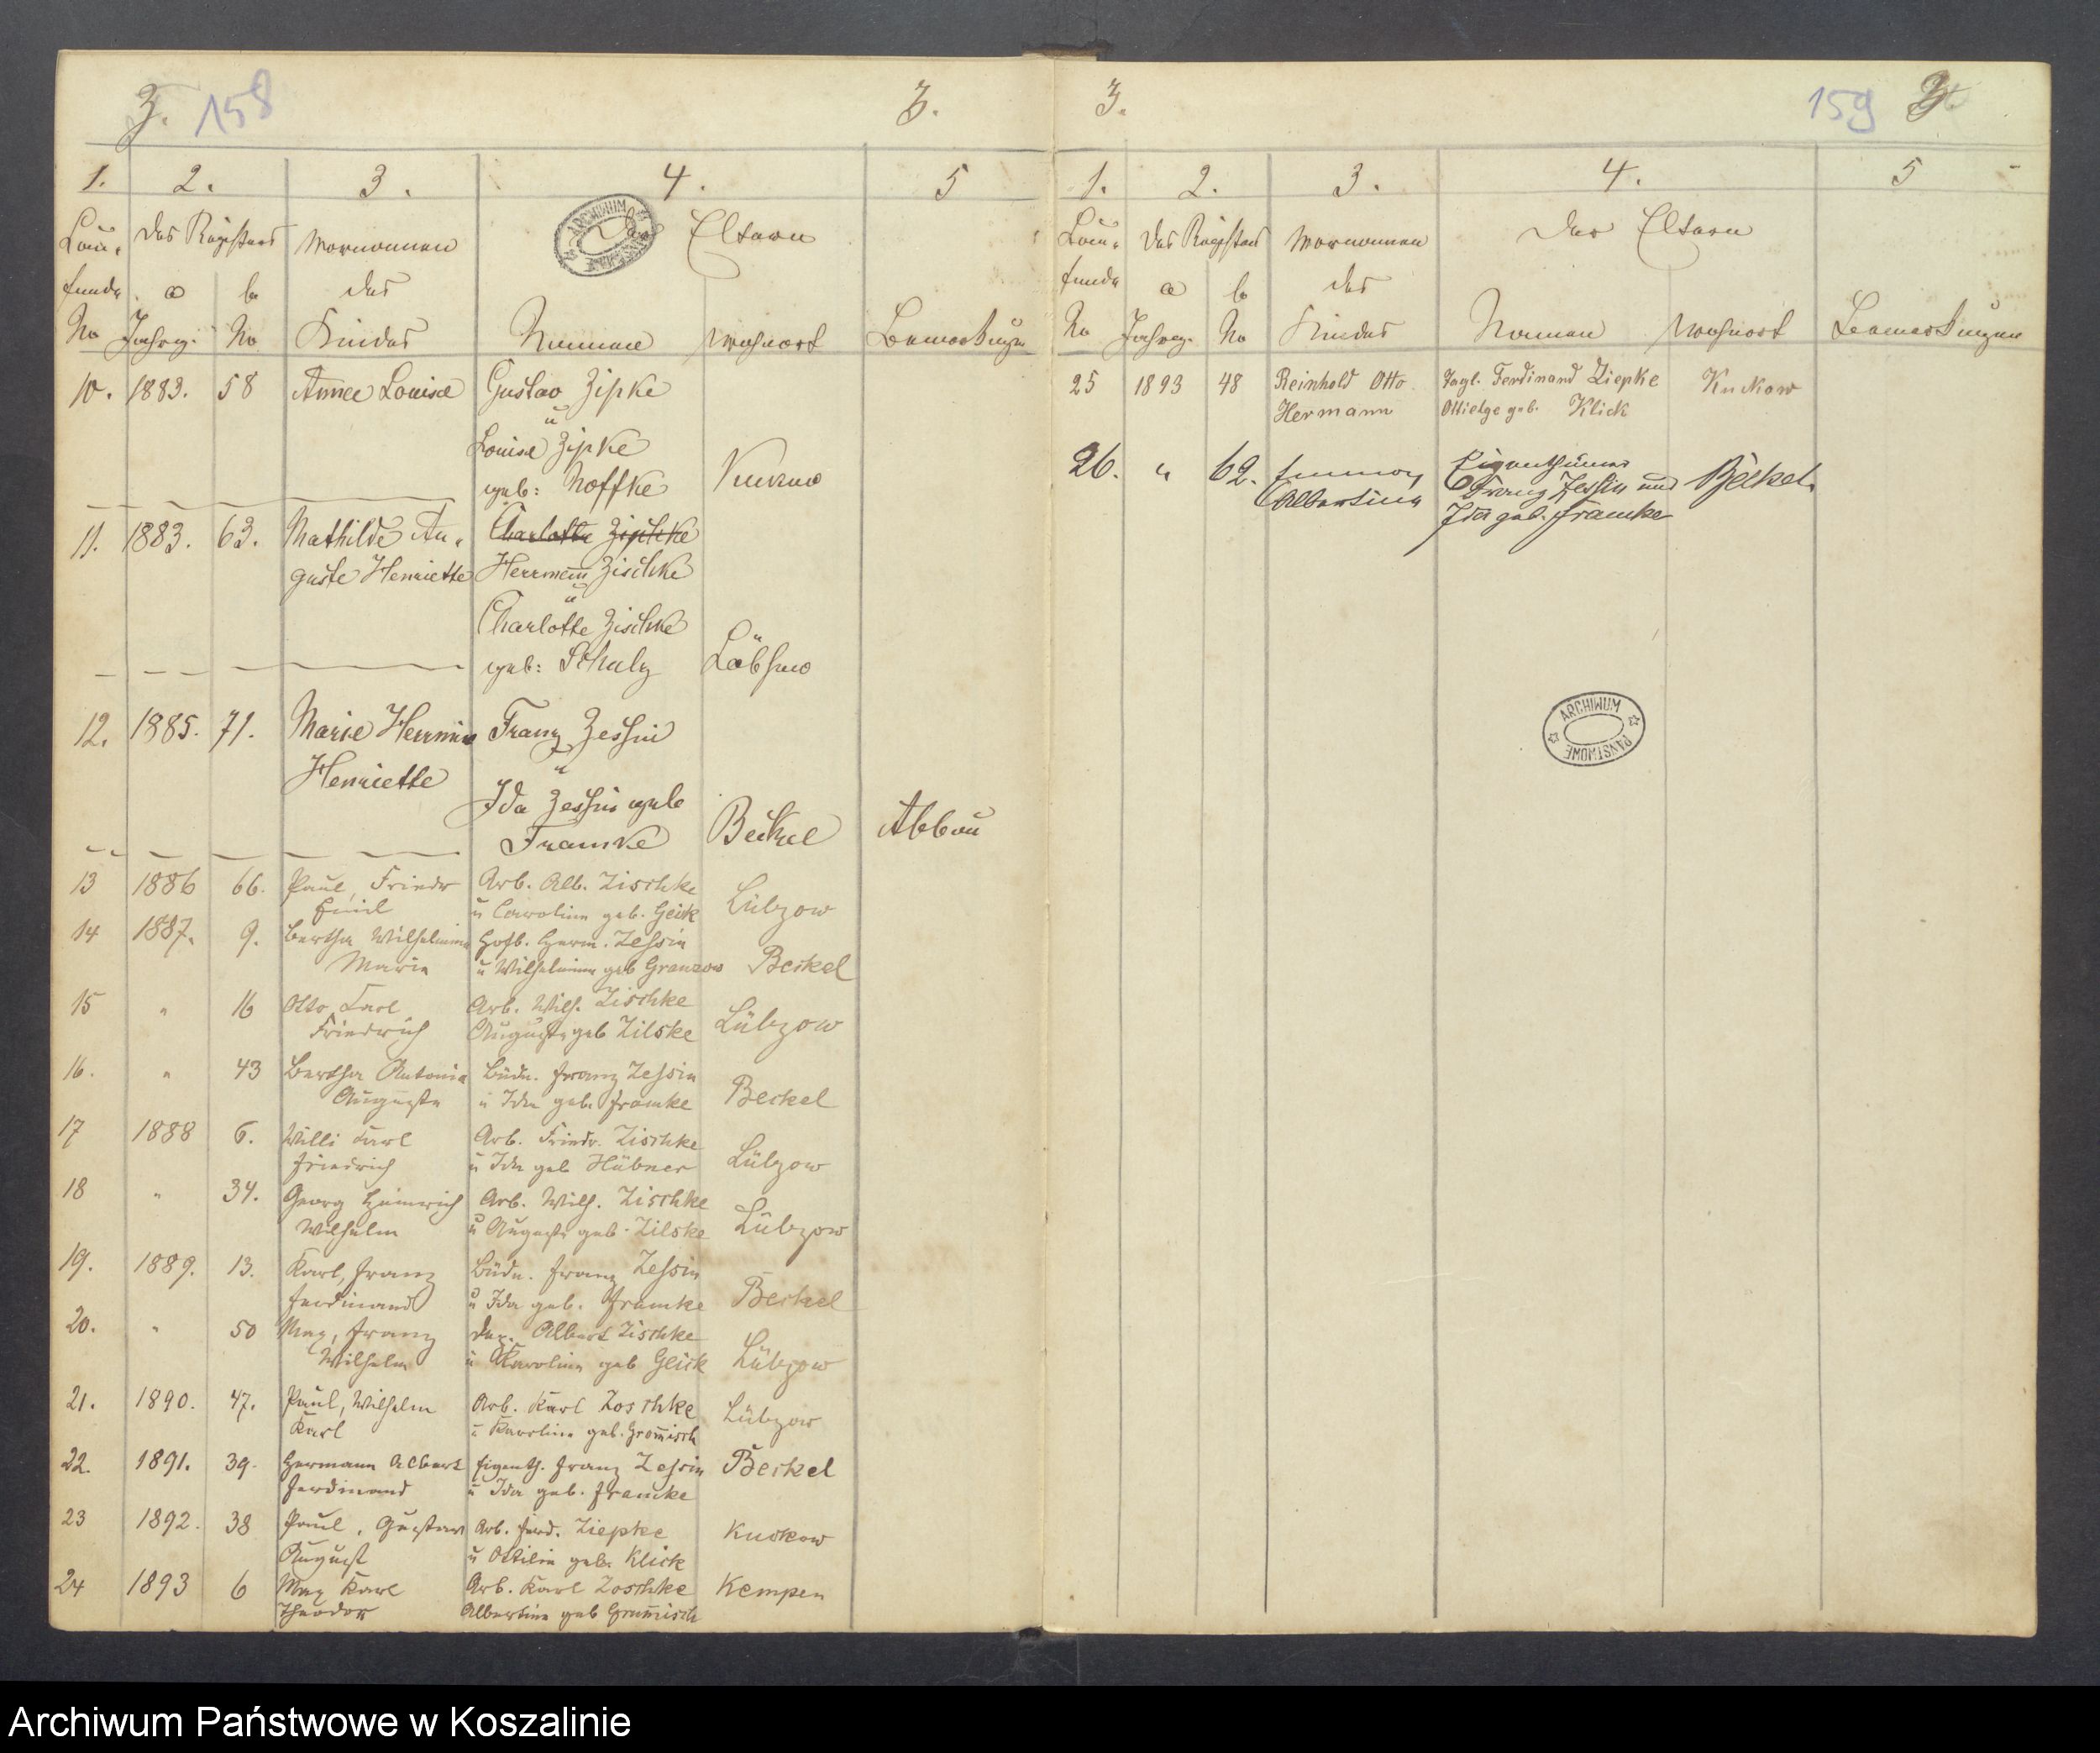 Z. 158
Z.
1. 2. 3. 4. 5
Lau- Des Registers Vornamen Der Eltern
fende a b des
No Jahrg. No Kindes Namen Wohnort Bemerkungen
10. 1883. 58 Anna Louise Gustav Zipke
u
Louise Zipke
geb: Noffke
11. 1883. 63. Mathilde Au- Charlotte Zischke
guste Henriette Herrmann Zischke
u
Charlotte Zischke
geb: Schulz Lübsow
12. 1885. 71. Marie Hermine Franz Zessin
Henriette u
Ida Zessin geb
Framke Beckel Abbau
13 1886 66. Paul, Friedr Arb. Alb. Zischke
Emil u Caroline geb. Geick Lübzow
14 1887. 9. Bertha Wilhelmine Hofb. Herm. Zessin
Marie u Wilhelmine geb Granzow Beckel
15 " 16 Otto Carl Arb. Wilh. Zischke
Friedrich Auguste geb Zilske Lübzow
16. " 43 Bertha Antonie Büdn. Franz Zessin
Auguste u Ida geb. Framke Beckel
17 1888 6. Willi Karl Arb. Friedr. Zischke
Friedrich u Ida geb Hübner Lübzow
18 " 34. Georg Heinrich Arb. Wilh. Zischke
Wilhelm u Auguste geb. Zilske Lübzow
19. 1889. 13. Karl, Franz Büdn. Franz Zessin
Ferdinand u Ida geb. Framke Beckel
20. " 50 Max, Franz Albert Zischke
Wilhelm u Karoline geb Geick Lübzow
21. 1890. 47. Paul, Wilhelm Arb. Karl Zoschke
Karl u Karoline geb. Lübzow
22. 1891. 39. Hermann Albert Eigenth. Franz Zessin Beckel
Ferdinand u Ida geb. Framke
23 1892. 38 Paul, Gustav Arb. Ferd. Ziepke Kuckow
August u Ottilie geb. Klick
24 1893 6 Max Karl Arb. Karl Zoschke Kempen
Theodor Albertine geb
Z. 159 Z.
1. 2. 3. 4. 5
Lau- Des Registers Vornamen Der Eltern
fende a b des
No Jahrg. No Kindes Namen Wohnort Bemerkungen
25 1893 48 Reinhold Otto Tagl. Ferdinand Ziepke Kuckow
Hermann geb. Klick
26. " 62. Emma, Eigenthümer
Albertine Franz Zessin und Beckel.
Ida geb. Framke
ARCHIWUM PAŃSTWOWE
ARCHIWUM PAŃSTWOWE
Archiwum Państwowe w Koszalinie